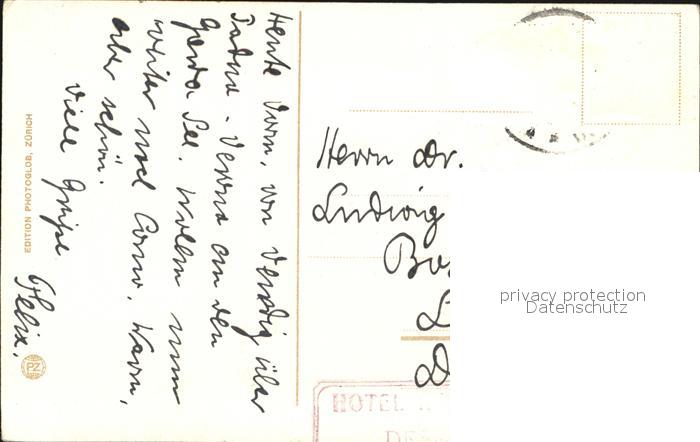 Heute vorm. von Venedig über
Padua - Verona an den
Garda See. Wollen nun
weiter nach Como. Warm,
aber schön.
Viele Grüße
Felix.
EDITION PHOTOGLOB, ZÜRICH
PZ
Herrn Dr.
Ludwig
HOTEL
privacy protection
Datenschutz